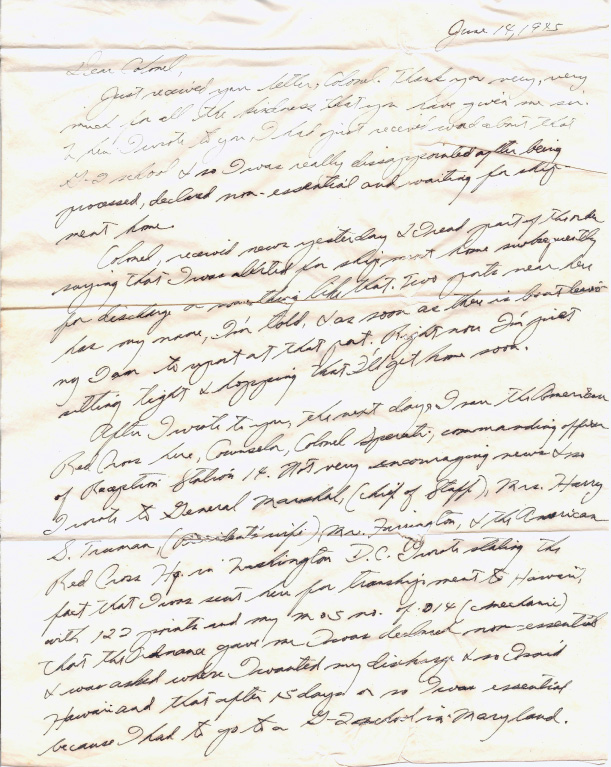 June 14, 1945
Dear Colonel,
Just received your letter, Colonel. Thank you very, very
much for all the kindness that you have given me sir.
When I wrote to you, I had just received word about that
G-2 school & so I was really disappointed after being
processed, declared non-essential and waiting for ship-
ment home.
Colonel, received news yesterday & I read part of the order
saying that I was alerted for shipment home subsequently
for discharge or something like that. Two ports near here
has my name, I'm told, & as soon as there is boat
I am to report at that port. Right now I'm just
sitting tight & hopping that I'll get home soon.
After I wrote to you, the next day, I saw the American
Red Cross here, Counselor, Colonel commanding officer
of Reception Station 14. Not very encouraging news & so
I wrote to General Marshal, (Chief of Staff), Mrs. Harry
S. Truman, (President's wife), Mr. Farrington, & the American
Red Cross Hq. in Washington D.C. I wrote stating the
fact that I was sent here for transhipment to Hawaii,
with 122 points and my MOS no. of 014 (mechanic)
that the Ordnance gave me I was declared non-essential
& was asked where I wanted my discharge & so I said
Hawaii and that after 15 days or so I was essential
because I had to go to a G-2 school in Maryland.